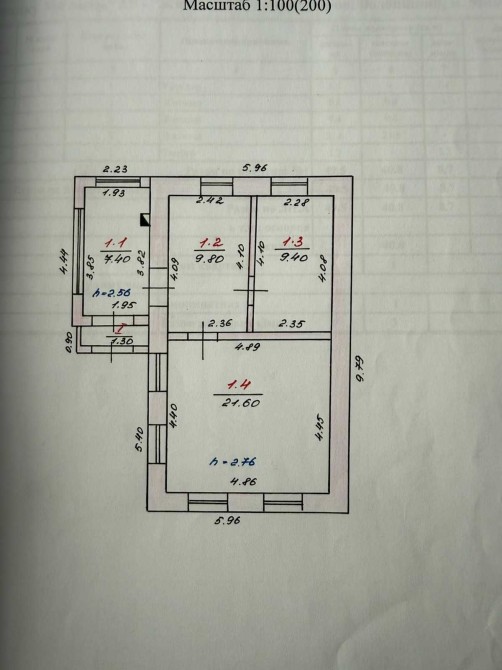 Масштаб 1:100(200)
2.23
5.96
1.93
2.42
2.28
4.44
3.85
1.1
7.40
3.82
4.09
1.2
9.80
4.10
4.10
1.3
9.40
4.08
h=2.56
1.95
I
1.30
0.90
2.36
2.35
4.89
9.79
1.4
21.60
4.40
4.45
5.40
h=2.76
4.86
5.96